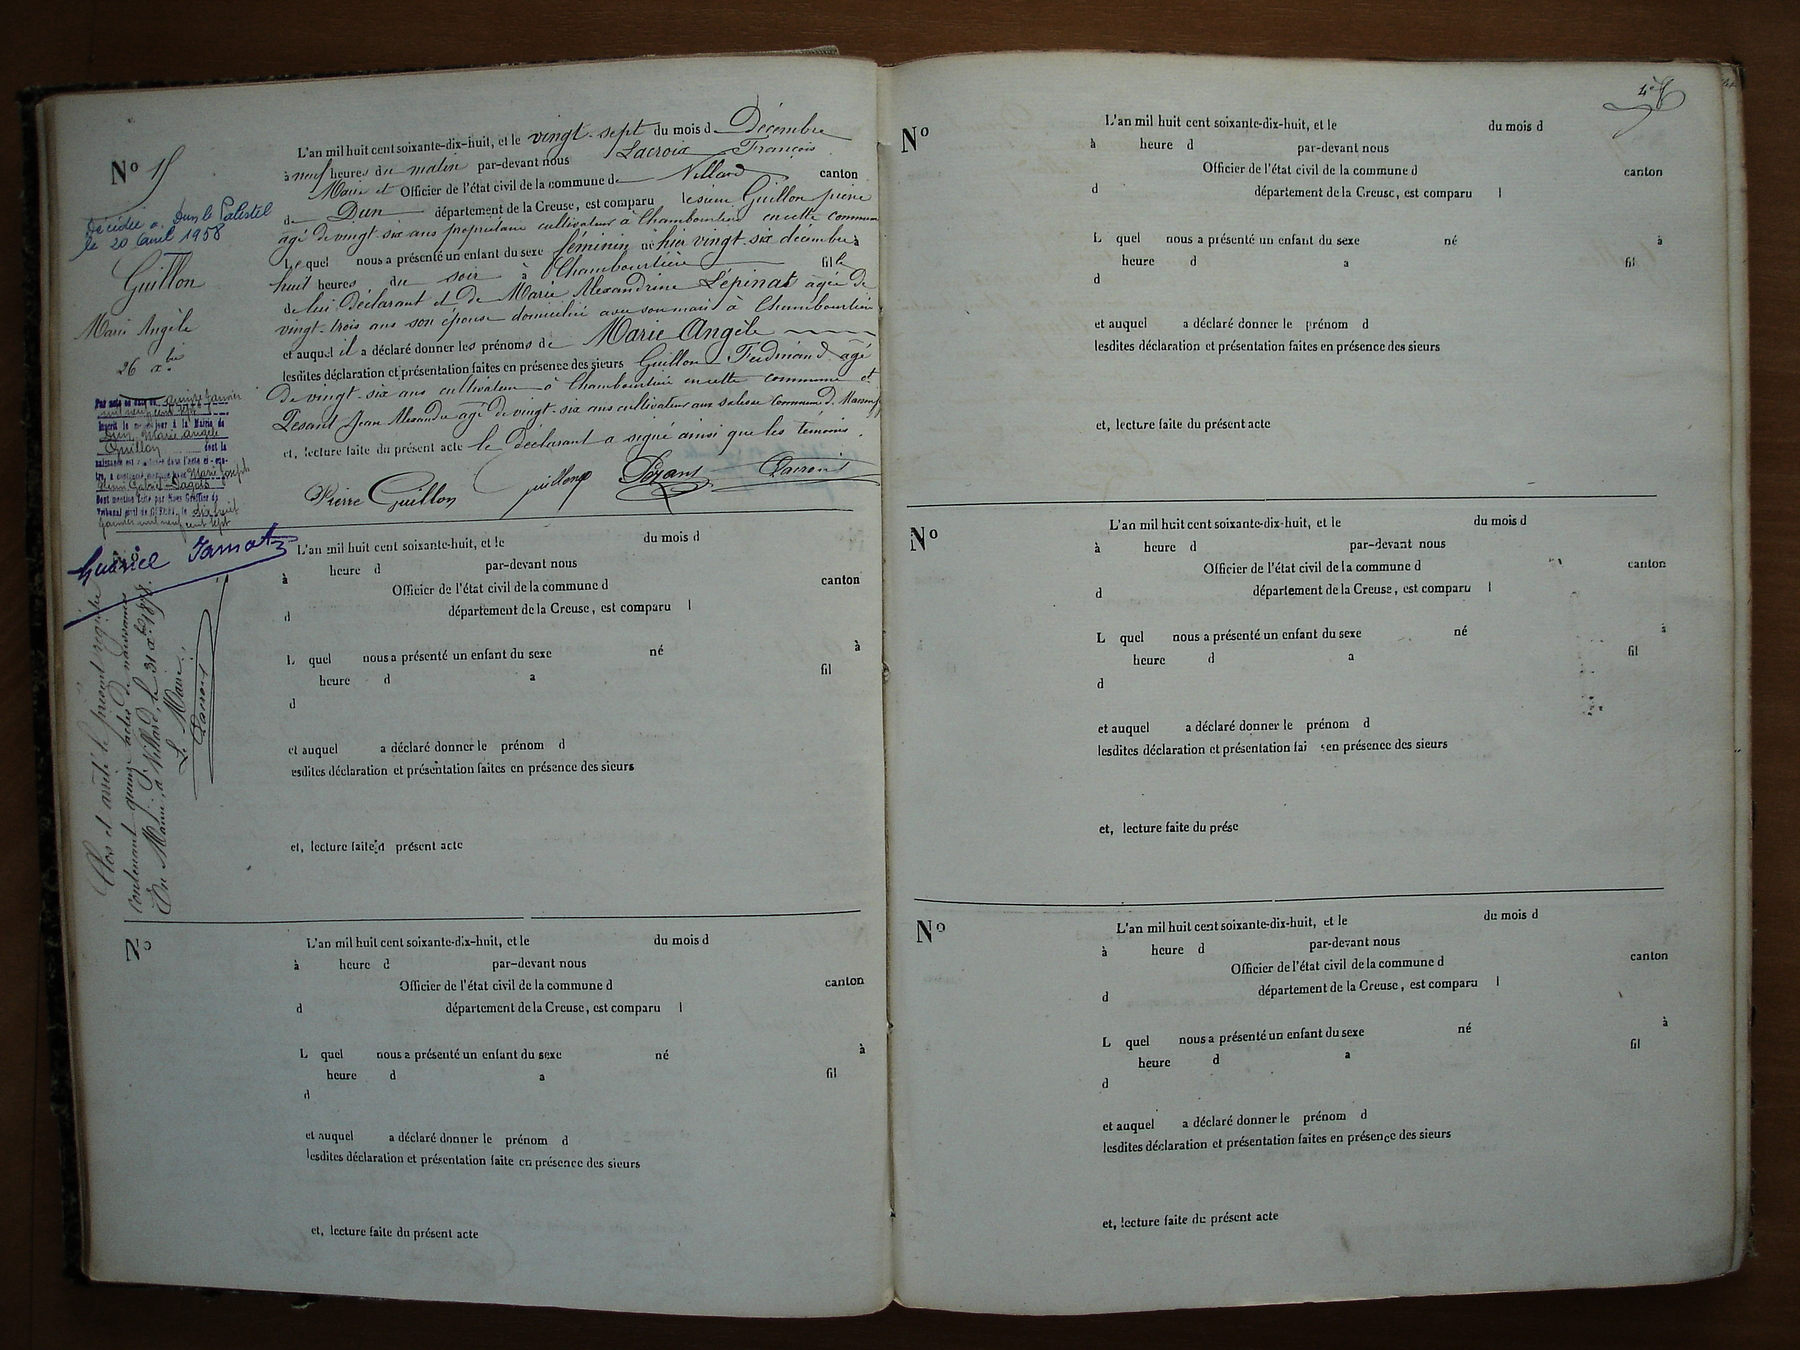 No 15
Décédée à Dun le Palestel
le 20 avril 1958
Guillon
Marie Angèle
26 Xbre
L'an mil huit cent soixante-dix-huit, et le vingt-sept du mois d Décembre
à neuf heures du matin par-devant nous Lacroix François
Maire et Officier de l'état civil de la commune de Villard canton
de Dun département de la Creuse, est comparu le sieur Guillon pierre
agé de vingt-six ans propriétaire cultivateur à Chambourtière en cette commune
Lequel nous a présenté un enfant du sexe féminin né hier vingt-six décembre à
huit heures du soir à Chambourtière fille
de lui déclarant et de Marie Alexandrine Lépinat agée de
vingt-trois ans son épouse domiciliée avec son mari à Chambourtière
et auquel il a déclaré donner les prénoms de Marie Angèle
lesdites déclaration et présentation faites en présence des sieurs Guillon Ferdinand agé
de vingt-six ans cultivateur à Chambourtière en cette commune et
Jean Alexandre agé de vingt-six ans cultivateur aux commune d.
et, lecture faite du présent acte le déclarant a signé ainsi que les témoins.
Pierre Guillon Guillon Lacroix
Par acte en date du quinze Janvier
mil neuf cent sept
Inscrit le même jour à la Mairie de
Dun, Marie Angèle
Guillon dont la
naissance est constatée dans l'acte ci-con-
tre, a contracté mariage avec Marie Joseph
Henri Gabriel
Dont mention faite par Nous Greffier du
Tribunal civil de le dix huit
Janvier mil neuf cent sept
No
Clos et arrêté le présent registre
contenant quinze actes de naissances
En Mairie, à Villard, le 31 Xbre 1878.
Le Maire,
Lacroix
L'an mil huit cent soixante-huit, et le du mois d
à heure d par-devant nous
Officier de l'état civil de la commune d canton
d département de la Creuse, est comparu l
L quel nous a présenté un enfant du sexe né à
heure d a fil
d
et auquel a déclaré donner le prénom d
esdites déclaration et présentation faites en présence des sieurs
et, lecture faite d présent acte
No
L'an mil huit cent soixante-dix-huit, et le du mois d
à heure d par-devant nous
Officier de l'état civil de la commune d canton
d département de la Creuse, est comparu l
L quel nous a présenté un enfant du sexe né à
heure d a fil
d
et auquel a déclaré donner le prénom d
lesdites déclaration et présentation faite en présence des sieurs
et, lecture faite du présent acte
No
L'an mil huit cent soixante-dix-huit, et le du mois d
à heure d par-devant nous
Officier de l'état civil de la commune d canton
d département de la Creuse, est comparu l
L quel nous a présenté un enfant du sexe né à
heure d a fil
d
et auquel a déclaré donner le prénom d
lesdites déclaration et présentation faites en présence des sieurs
et, lecture faite du présent acte
No
L'an mil huit cent soixante-dix-huit, et le du mois d
à heure d par-devant nous
Officier de l'état civil de la commune d canton
d département de la Creuse, est comparu l
L quel nous a présenté un enfant du sexe né à
heure d a fil
d
et auquel a déclaré donner le prénom d
lesdites déclaration et présentation fai en présence des sieurs
et, lecture faite du prése
No
L'an mil huit cent soixante-dix-huit, et le du mois d
à heure d par-devant nous
Officier de l'état civil de la commune d canton
d département de la Creuse, est comparu l
L quel nous a présenté un enfant du sexe né à
heure d a fil
d
et auquel a déclaré donner le prénom d
lesdites déclaration et présentation faites en présence des sieurs
et, lecture faite du présent acte